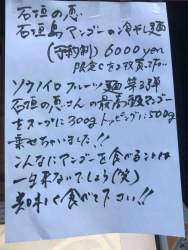 石垣の恵
石垣島マンゴーの冷やし麺
(予約制) 6000yen
ソウノイロ フルーツ麺 第3弾
石垣の恵さんの最高級マンゴー
をスープに300g トッピングに500g
乗せちゃいました!!
こんなにマンゴーを食べることは
一生ないでしょう(笑)
美味しく食べて下さい!!